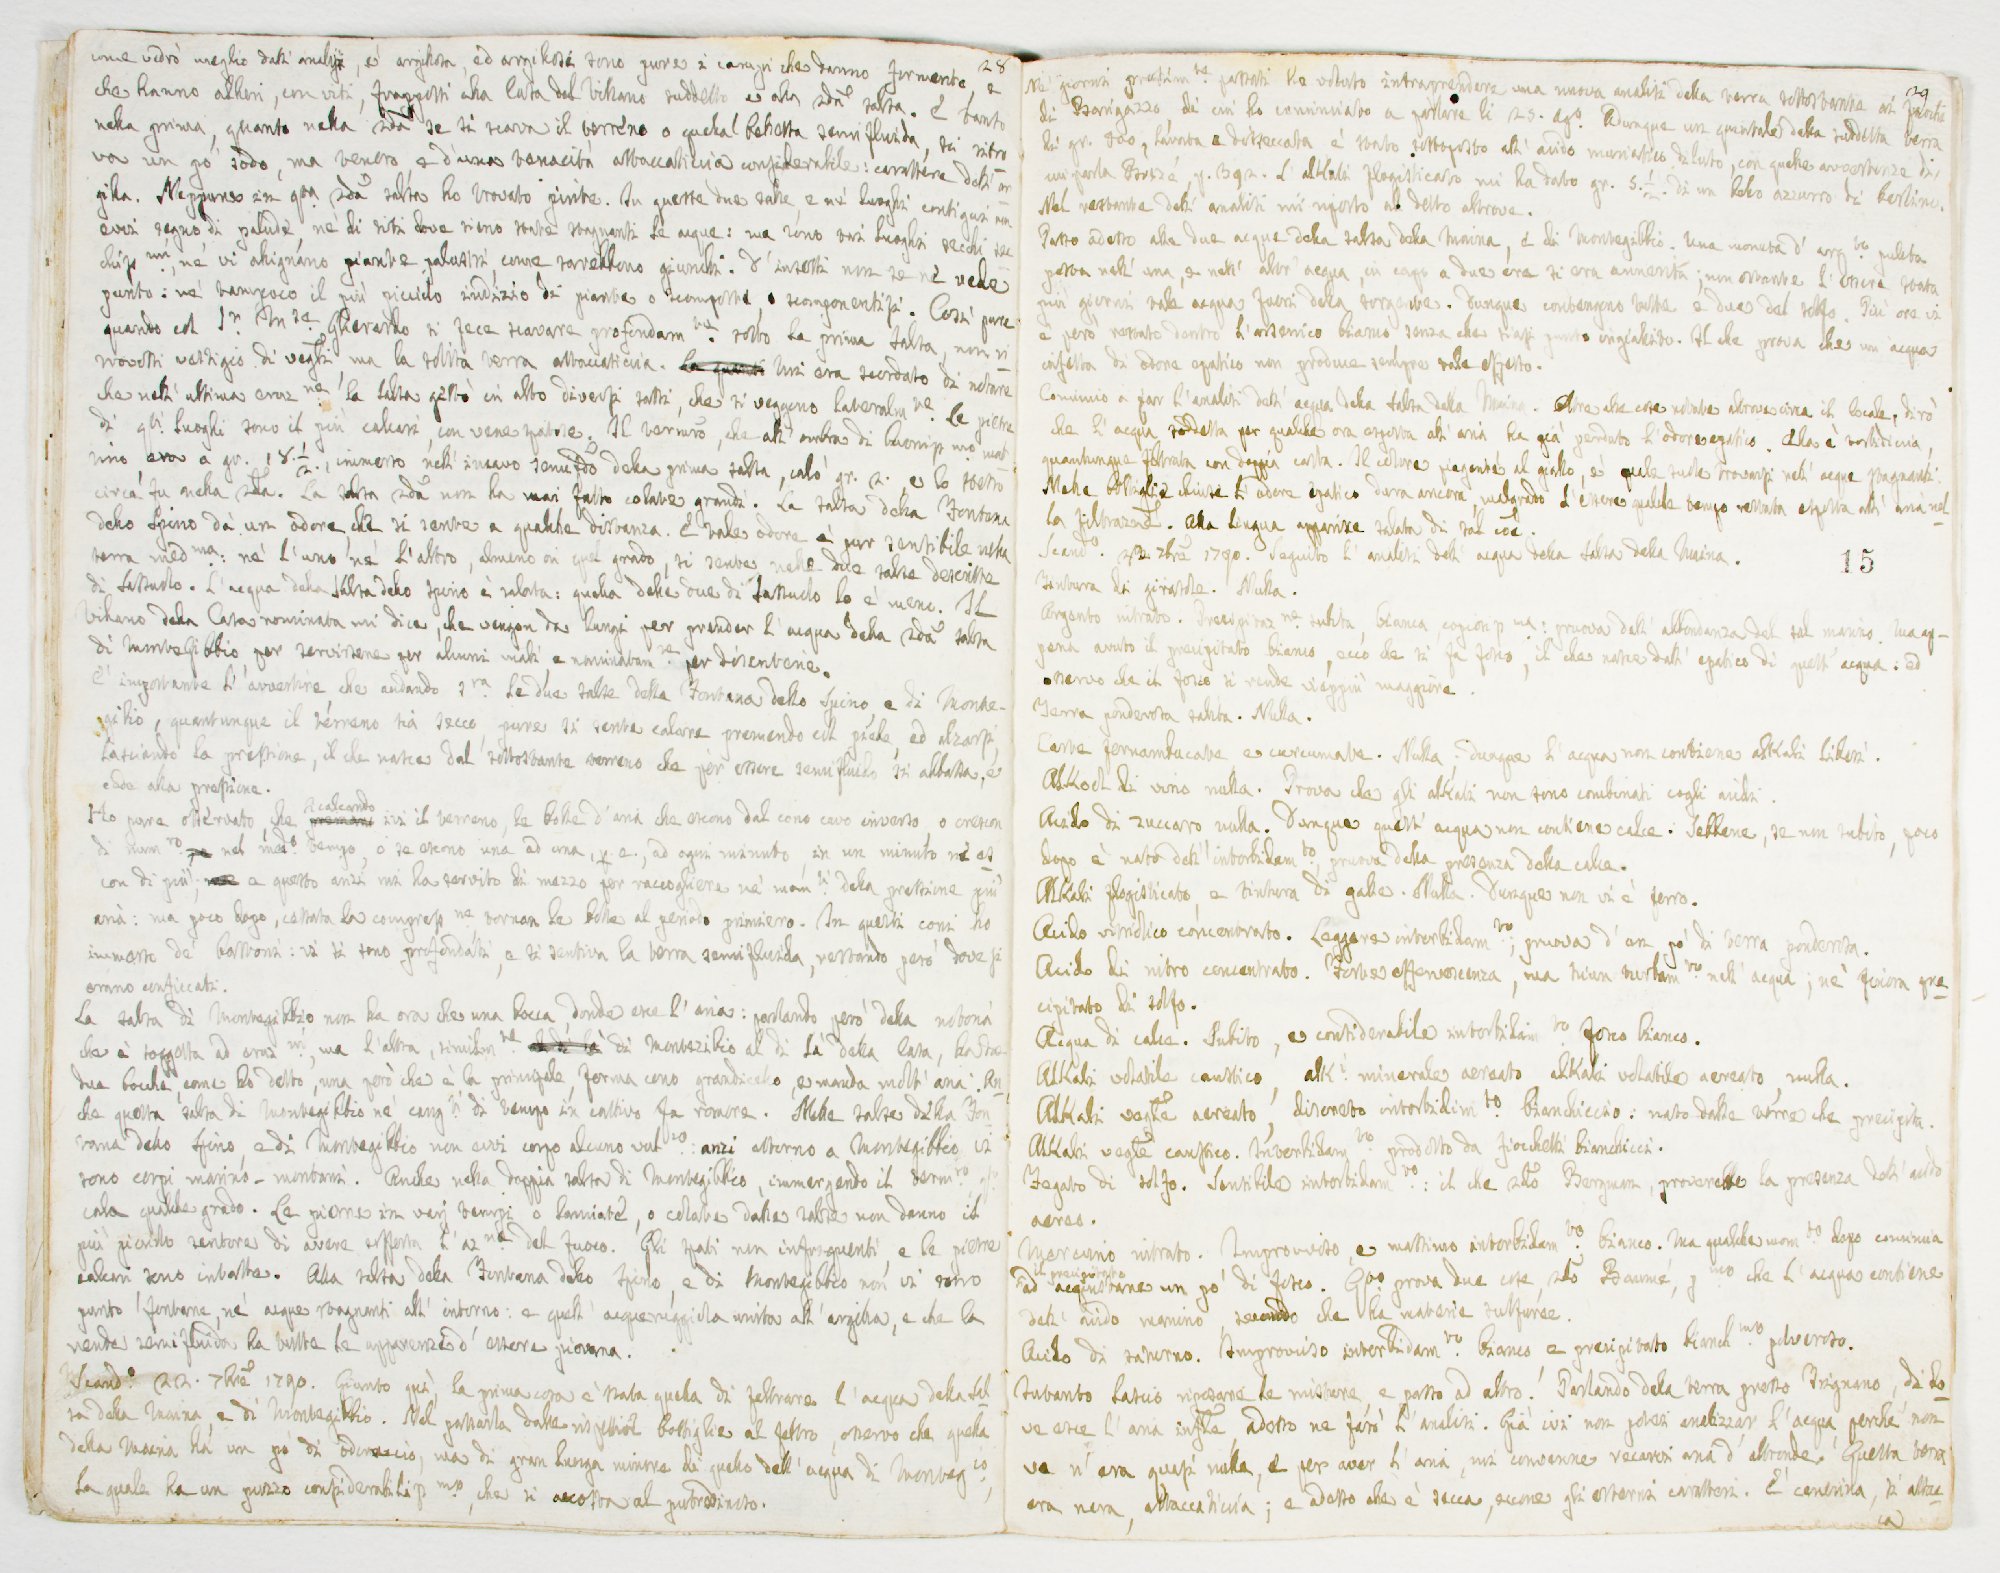 28
come vedrò meglio dall'analisi, è argillosa, ed argillosi sono pure i campi che danno formento, e
che hanno alberi, con viti, frapposti alla casa del Villano suddetto e alla 2da salsa. E tanto
nella prima, quanto nella 2da se si scava il terreno o quella belletta semifluida, si ritro
va un pò sodo, ma tenero e d'una tenacità attaccaticcia considerabile: carattere dell'ar
gilla. Neppure in qta 2da salsa ho trovato pirite. In queste due salse, e nei luoghi contigui non
evvi segno di palude, nè di siti dove sieno state stagnanti le acque: ma sono tutti luoghi secchi sec
chiss mi, nè vi allignano piante palustri, come sarebbono giunchi. D'insetti non se ne vede
punto: nè tampoco il più picciolo indizio di piante o scomposte, o scomponentisi. Così pure
quando col Sr Mse Gherardo si fece scavare profondam te sotto la prima salsa, non si
trovossi vestigio di vegli, ma la solita terra attaccaticcia. Mi era scordato di notare
che nell'ultima eruz ne la salsa gittò in alto diversi sassi, che si veggono lateralm te. Le pietre
di qti luoghi sono il più calcari, con vene spatose. Il termro, che all'ombra di buoniss mo mat
tino era a gr. 18.½, immerso nell'incavo semifdo della prima salsa, calò gr. 2. e lo stesso
circa fu nella 2da. La salsa 2da non ha mai fatto colate grandi. La salsa della Fontana
dello Spino dà un odore che si sente a qualche distanza. E tale odore è pur sensibile nella
terra med ma: nè l'uno nè l'altro, almeno in quel grado, si sente nelle due salse descritte
di Sassuolo. L'acqua della salsa dello spino è salata: quella delle due di Sassuolo lo è meno. Il
Villano della Casa nominata mi dice, che vengon da lungi per prender l'acqua della 2da salsa
di Montegibbio, per servirsene per alcuni mali e nominatam te per disenterie.
E' importante l'avvertire che andando sra le due salse della Fontana dello Spino, e di Monte-
gibio, quantunque il terreno sia secco, pure si sente calare premendo col piede, ed alzarsi,
lasciando la pressione, il che nasce dal sottostante terreno che per essere semifluido si abbassa, e
cede alla pressione.
Ho pure osservato, che calcando ivi il terreno, le bolle d'aria che escono dal cono cavo inverso, o crescon
di num ro nel med o tempo, o se escono una ad una, p. e., ad ogni minuto, in un minuto ne es
con di più; e questo anzi mi ha servito di mezzo per raccogliere ne' mom ti della pressione più
aria: ma poco dopo, cessata la compress ne tornan le bolle al periodo primiero. In questi coni ho
immerso de' bastoni: vi si sono profondati, e si sentiva la terra semifluida, restando però dove si
erano conficcati.
La salsa di Montegibbio non ha ora che una bocca donde esce l'aria: parlando però della
che è soggetta ad eruz ni, ma l'altra, similm te di Montegibio al di là della casa, ha
due bocche, come ho detto, una però che è la principale, forma cono grandicello, e manda molt'aria. An
che questa salsa di Montegibbio ne' cang ti di tempo in cattivo fa romore. Nelle salse della Fon
tana dello Spino, e di Montegibbio non evvi corpo alcuno vul co: anzi attorno a Montegibbio vi
sono corpi marino-montani. Anche nella doppia salsa di Montegibbio, immergendo il term ro
cala qualche grado. Le pietre in varj tempi o lanciate, o colate dalle salse non danno il
più picciolo sentore di avere sofferta l'az ne del fuoco. Gli spati non infrequenti, e le pietre
calcari sono intatte. Alla salsa della Fontana dello Spino, e di Montegibbio non vi sono
punto fontane, nè acque stagnanti all'intorno: e quell'acqueruggiola unita all'argilla, e che la
rende semifluida ha tutte le apparenze d'essere piovana.
Scand o 22. 7bre 1790. Giunto quì, la prima cosa è stata quella di feltrare l'acqua della sal
sa della Maina e di Montegibbio. Nel passarla dalle rispettive bottiglie al feltro, osservo che quella
della Maina ha un pò di odoraccio, ma di gran lunga minore di quello dell'acqua di Monteg co,
la quale ha un puzzo considerabiliss mo, che si accosta al putredinoso.
29
Ne' giorni prossim te passati ho voluto intraprendere una nuova analisi della terra sottostante ai fuochi
di Barigazzo, di cui ho cominciato a parlare li 25. Ago. Adunque un quintale della suddetta terra
di gr. 500, lavata e disseccata è stato sottoposto all'acido muriatico diluto, con quelle avvertenze di
cui parla p. 392. L'alkali flogisticato mi ha dato gr. 5.½. di un bello azzurro di berlino.
Nel restante dell'analisi mi riporto al detto altrove.
Passo adesso alle due acque della salsa della Maina, e di Montegibbio. Una moneta d'arg to pulita
posta nell'una, e nell'altr'acqua, in capo a due ore si era annerita; non ostante l'essere stata
più giorni tale acqua fuori della sorgente. Dunque contengono tutte e due del solfo. Più ore vi
è però restato dentro l'arsenico bianco senza che siasi punto ingiallito. Il che prova che un'acqua
infetta di odore epatico non produce sempre tale effetto.
Comincio a far l'analisi dell'acqua della salsa della Maina. Oltre alle cose notate altrove circa il locale, dirò
che l'acqua suddetta per qualche ora esposta all'aria ha già perduto l'odore epatico. Ella è torbidiccia,
quantunque feltrata con doppia carta. Il colore piegante al giallo, è quale suole trovarsi nell'acque stagnanti.
Nelle bottiglie chiuse l'odore epatico dura ancora, malgrado l'essere qualche tempo restata esposta all'aria nel
la filtrazne. Alla lingua apparisce salata di sal coe.
Scand o. 22. 7bre 1790. Seguito l'analisi dell'acqua della salsa della Maina.
15
Tintura di girasole. Nulla.
Argento nitrato. Precipitaz ne subita, bianca, copiosiss ma: pruova dell'abbondanza del sal marino. Ma ap-
pena avuto il precipitato bianco, ecco che si fa fosco, il che nasce dall'epatico di quest'acqua: ed
osservo che il fosco si rende vieppiù maggiore.
Terra ponderosa salita. Nulla.
Carte fernambucate, e curcumate. Nulla; dunque l'acqua non contiene alkali liberi.
Alkool di vino nulla. Prova che gli alkali non sono combinati cogli acidi.
Acido di zuccaro nulla. Dunque quest'acqua non contiene calce. Sebbene, se non subito, poco
dopo è nato dell'intorbidam to, pruova della presenza della calce.
Alkali flogisticato, e tintura di galle. Nulla. Dunque non vi è ferro.
Acido vitriolico concentrato. Leggero intorbidam to, pruova d'un pò di terra ponderosa.
Acido di nitro concentrato. Forte effervescenza, ma niun turbam to nell'acqua; nè finora pre-
cipitato di solfo.
Acqua di calce. Subito, e considerabile intorbidam to fosco bianco.
Alkali volatile caustico, alk i minerale aereato alkali volatile aereato, nulla.
Alkali vegle aereato, discreto intorbidim to bianchiccio: nato dalle terre che precipita.
Alkali vegle caustico. Intorbidam to prodotto da fiocchetti bianchicci.
Fegato di solfo. Sensibile intorbidam to: il che 2do Bergman, proverebbe la presenza dell'acido
aereo.
Mercurio nitrato. Improvviso, e massimo intorbidam to bianco. Ma qualche mom to dopo comincia
il precipitato
ad acquistarne un pò di fosco. Qto prova due cose, 2do Baumé, p mo che l'acqua contiene
dell'acido marino, secondo che ha materie sulfuree.
Acido di saturno. Improvviso intorbidam to bianco e precipitato bianch mo polveroso.
Intanto lascio riposare le misture, e passo ad altro. Parlando della terra presso Trignano, di do
ve esce l'aria infle, adesso ne farò l'analisi. Già ivi non potei analizzar l'acqua, perchè non
ve n'era quasi nulla, e per aver l'aria, mi convenne recarvi acqua d'altronde. Questa terra
era nera, attaccaticcia; e adesso che è secca, eccone gli esterni caratteri. E' cenerina, si attac-
ca